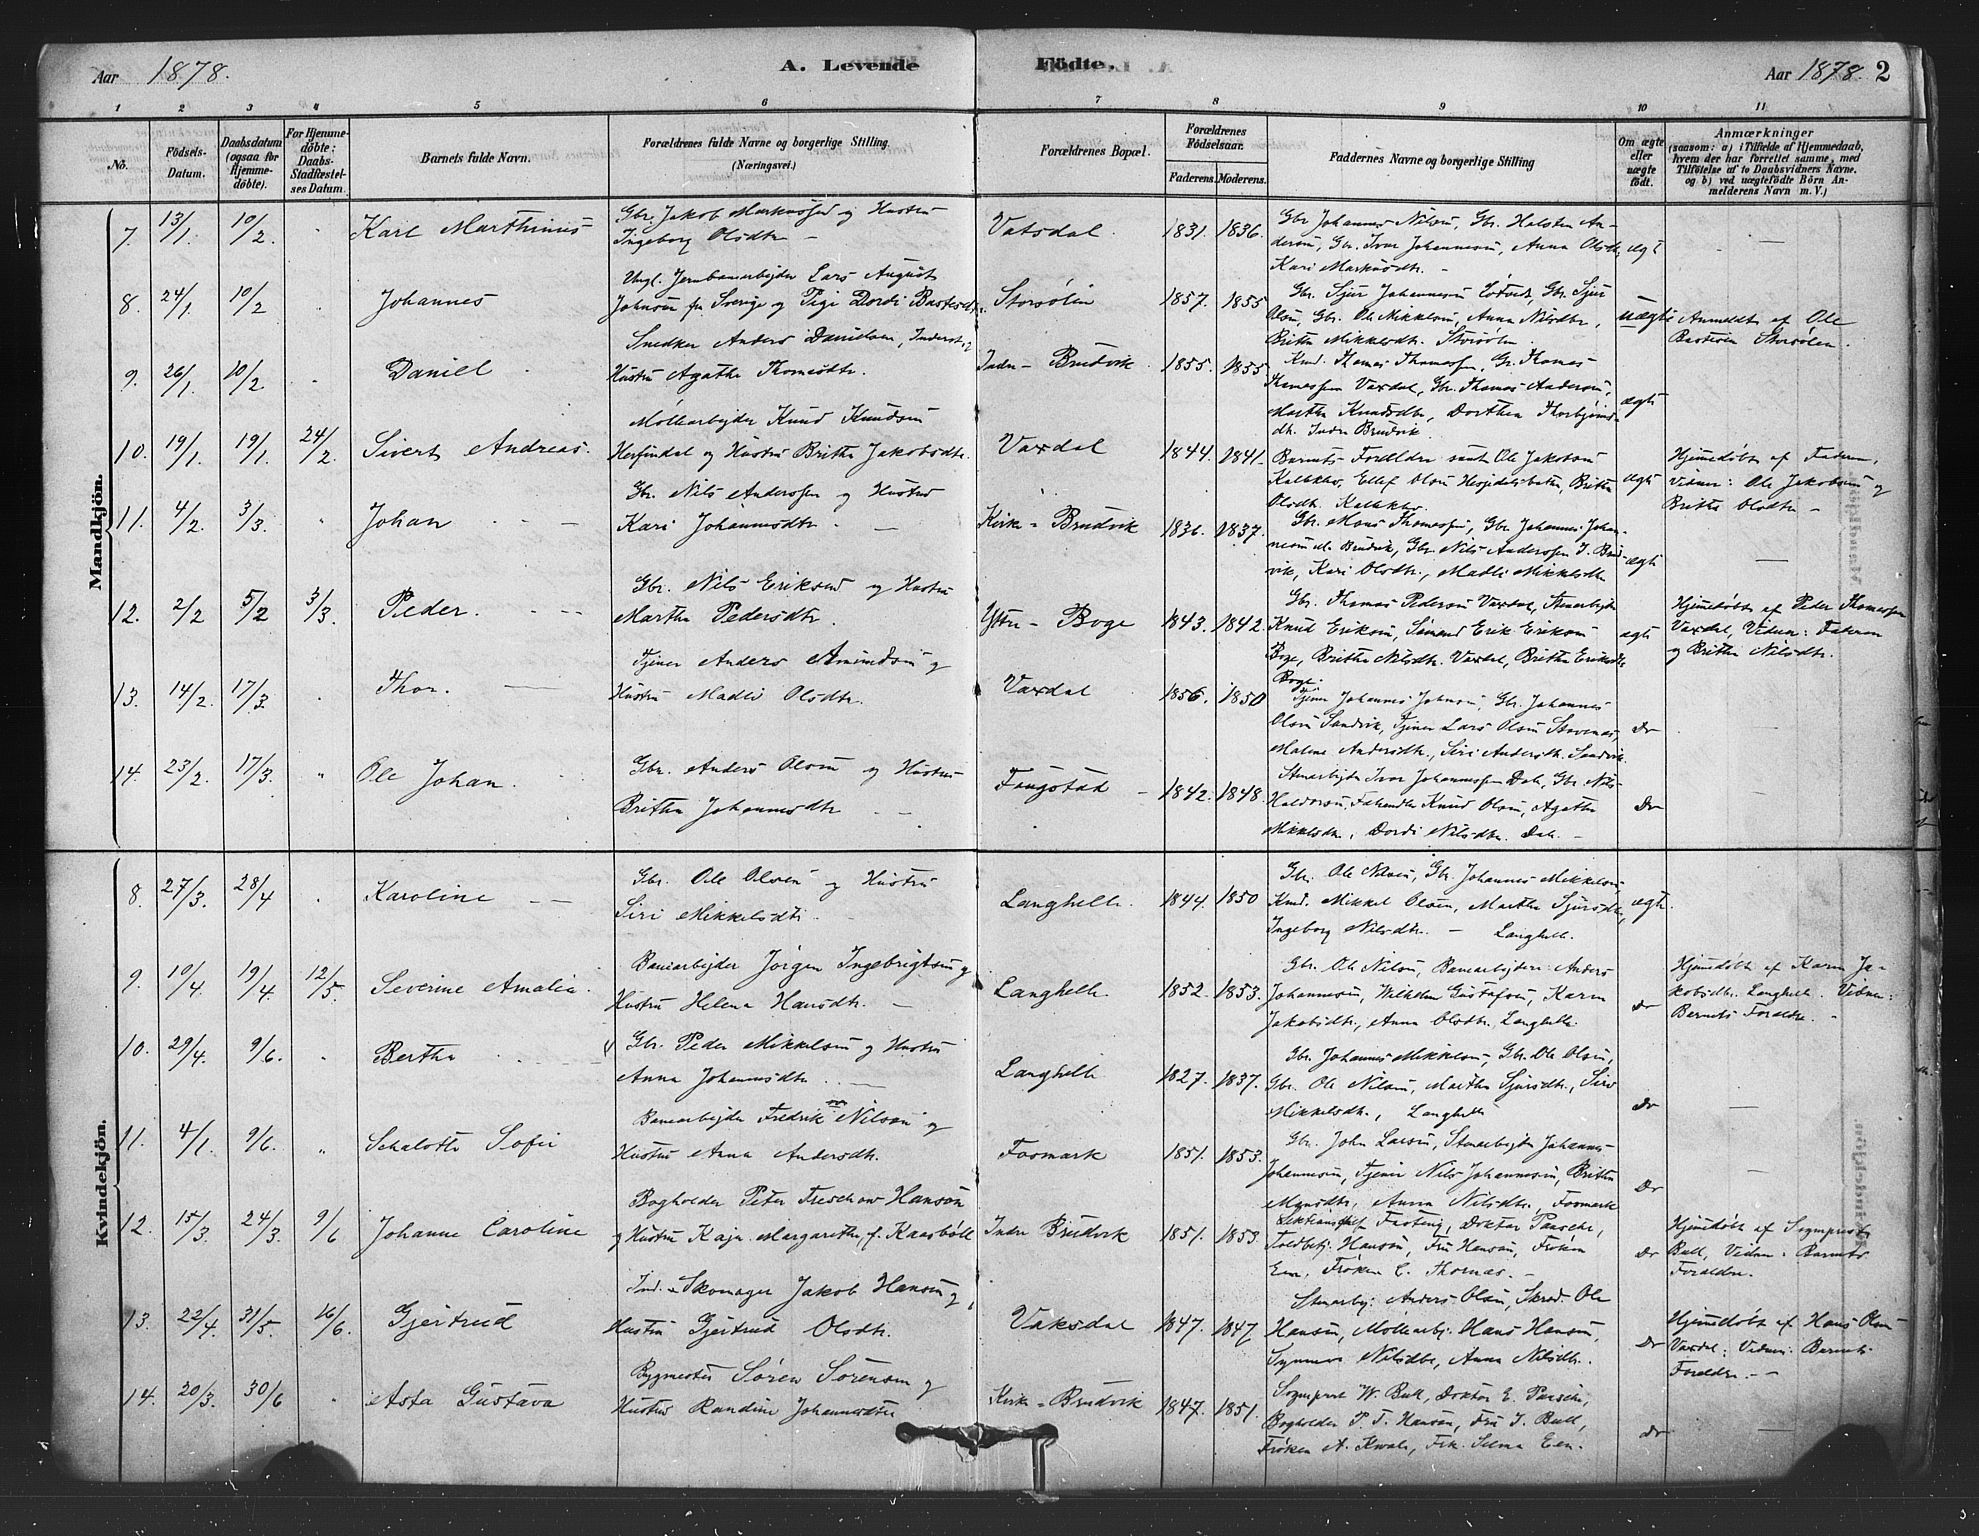 Aar 1878.
A. Levende Födte.
Aar 1878. 2
1 2 3 4 5 6 7 8 9 10 11
No.
Födsels-Datum.
Daabsdatum (ogsaa for Hjemmedöbte).
For Hjemmedöbte: Daabs-Stadfæstelses Datum.
Barnets fulde Navn.
Forældrenes fulde Navne og borgerlige Stilling. (Næringsvei.)
Forældrenes Bopæl.
Forældrenes Födselsaar.
Faderens. Moderens.
Faddernes Navne og borgerlige Stilling
Om ægte eller uægte födt.
Anmærkninger
(saasom: a) i Tilfælde af Hjemmedaab, hvem der har forrettet samme, med Tilföielse af to Daabsvidners Navne. og b) ved uægtefödte Börn Anmelderens Navn m. V.)
Mandkjön.
7. 13/1. 10/2. Karl Marthinus
Gbr. Jakob Markussen og Hustru
Ingeborg Olsdtr. —
Vatsdal. 1831. 1836.
Gbr Johannes Nilsen, Gbr. Halsten An-
dersen, Gbr. Ivar Johannesen, Anna Olsdtr,
Kari Markusdtr. —
ægt —
8. 24/1. 10/2 Johannes
Ungk. Jernbanearbejder Lars August
Johnsen fra Sverige og Pige Dordi
Storsölen 1857. 1855
Gbr. Sjur Johannesen Gbr. Sjur
Olsen, Gbr. Ole Mikkelsen, Anna Nilsdtr,
Britta Mikkelsdtr. Storsölen.
uægte
Anmeldt af Ole
Storsölen.
9. 26/1. 10/2. Daniel
Snedker Anders Danielsen,
Hustru Agathe Thomasdtr.
Indre-Brudvik. 1855. 1855
Knud Thomas Thomassen, Gbr. Thomas
Thomassen Vaxdal, Gbr. Thomas Andersen,
Martha Knudsdtr, Dorthea
dtr. Indre Brudvik.
ægte
10. 19/1. 19/1. 24/2. Sivert Andreas.
Möllearbejder Knud Knudsen
Herfindal og Hustru Britha Jakobsdtr.
Vaxdal 1844. 1841.
Barnets Forældre samt Ole Jakobsen
Ellef Olsen Britha
Olsdtr.
ægte
Hjemmedöbt af Faderen,
Vidner: Ole Jakobsen og
Britha Olsdtr —
11. 4/2. 3/3. Johan
Gbr. Nils Anderssen og Hustru
Kari Johannesdtr. —
Kirke-Brudvik 1836. 1837.
Gbr. Mons Thomassen, Gbr. Johannes Johan-
nesen Brudvik, Gbr. Nils Anderssen I. Brud-
vik, Kari Olsdtr., Madli Mikkelsdtr
ægte —
12. 2/2 5/2 3/3. Peder.
Gbr. Nils Eriksen og Hustru
Martha Pedersdtr.
Yttre-Boge 1843. 1842.
Gbr. Thomas Pedersen Vaxdal, Stenarbejder
Knud Eriksen, Sömand Erik Eriksen
Boge, Britha Nilsdtr. Vaxdal, Britha Eriksdtr
Boge.
ægte
Hjemmedöbt af Peder Thomassen
Vaxdal, Vidner: Faderen
og Britha Nilsdtr.
13. 14/2. 17/3. Thor.
Tjener Anders Amundsen og
Hustru Madli Olsdtr.
Vaxdal 1856. 1850
Tjener Johannes Johnsen, Gbr. Johannes
Olsen Sandvik, Tjener Lars Olsen
Malene Andersdtr., Siri Andersdtr. Sandvik.
Do —
14. 23/2. 17/3. Ole Johan.
Gbr. Anders Olsen og Hustru
Britha Johannesdtr. —
Fuglstad 1842. 1848.
Stenarbejder Ivar Johannessen Dale, Gbr. Nils
Haldorsen, Knud Olsen, Agatha
Mikkelsdtr., Dordi Nilsdtr. Dale. —
Do
Kvindekjön.
8. 27/3. 28/4 Karoline
Gbr. Ole Olsen og Hustru
Siri Mikkelsdtr. —
Langhelle. 1844. 1850
Gbr. Ole Nilsen, Gbr. Johannes Mikkelsen,
Mikkel Olsen, Martha Sjursdtr,
Ingeborg Nilsdtr. — Langhelle.
ægte.
9. 10/4. 19/4. 12/5. Severine Amalia.
Banearbejder Jörgen Ingebrigtsen og
Hustru Helena Hansdtr. —
Langhelle 1852. 1853.
Gbr. Ole Nilsen, Banearbejdere: Anders
Johannesen, Wilhelm Gustafsen, Karen
Jakobsdtr., Anna Olsdtr. Langhelle.
Do
Hjemmedöbt af Karen Ja-
kobsdtr. Langhelle. Vidner:
Barnets Forældre. —
10. 29/4. 9/6. Bertha
Gbr. Peder Mikkelsen og Hustru
Anna Johannesdtr. —
Langhelle 1827. 1837.
Gbr. Johannes Mikkelsen, Gbr. Ole Olsen,
Gbr. Ole Nilsen, Martha Sjursdtr., Siri
Mikkelsdtr., Langhelle
Do —
11. 4/1. 9/6. Schalotte Sofie
Banearbejder Fredrik Nilsen og
Hustru Anna Andersdtr.
Fosmark 1851. 1853.
Gbr. John Larsen, Stenarbejder Johannes
Johannesen, Tjener Nils Johannesen, Britha
Monsdtr., Anna Nilsdtr., Fosmark
Do —
12. 15/3. 24/3. 9/6 Johanne Caroline
Bogholder Peter Treschow Hansen
og Hustru Kaja Margarethe, f. Kaasböll
Indre Brudvik 1851. 1853.
Sektionschef Fasting, Doktor Pasche,
Toldbetj. Hansen, Fru Hansen, Fröken
Een, Fröken C. Thomas. —
Do
Hjemmedöbt af Sognepræst
Bull, Vidner: Barnets
Forældre.
13. 22/4. 31/5. 16/6. Gjertrud
Ind. Skomager Jakob Hansen og
Hustru Gjertrud Olsdtr.
Vaksdal 1847. 1847.
Stenarbej. Anders Olsen, Skræd. Ole
Hansen, Möllearbj. Hans Hansen,
Synneva Nilsdtr, Anna Nilsdtr.
Do
Hjemmedöbt af Hans Olsen
Vaxdal: Vidner: Barnets
Forældre. —
14. 20/3. 30/6 Asta Gustava
Bygmester Sören Sörensen og
Hustru Randine Johannesdtr
Kirke-Brudvik 1847. 1851.
Sognepræst W. Bull, Doktor E. Pasche,
Bogholder P. T. Hansen, Fru I. Bull,
Fröken A. Frk. Selma Een.
Do —